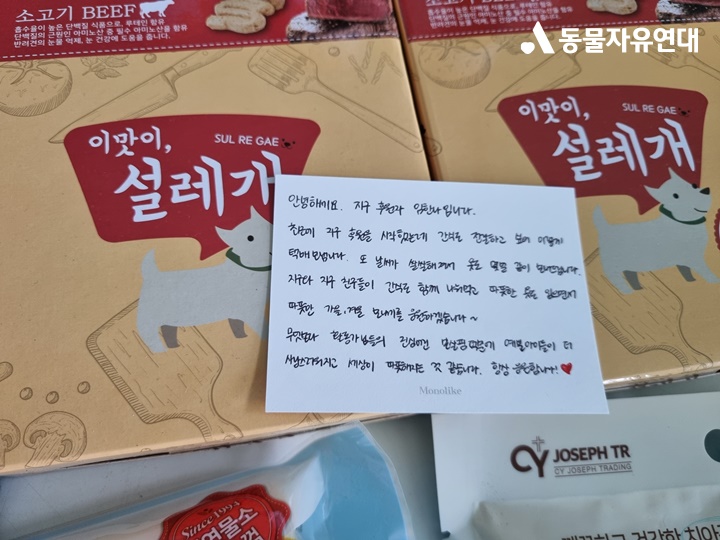 소고기 BEEF
흡수율이 높은 단백질 식품으로, 루테인 함유
단백질의 근원인 아미노산 중 필수 아미노산을 함유
반려견의 눈물 억제, 눈 건강에 도움을 줍니다.
동물자유연대
이맛이,
SUL RE GAE
설레개
이맛이,
SUL RE GAE
설레개
안녕하세요. 지구 후원자 입니다.
최근에 지구 후원을 시작했는데 간식을 전달하고 싶어 이렇게
택배 보냅니다. 또 날씨가 쌀쌀해져서 옷도 몇벌 같이 보내드립니다.
지구와 지구 친구들이 간식을 함께 나눠먹고 따뜻한 옷을 입으면서
따뜻한 가을, 겨울 보내기를 응원하겠습니다~
무엇보다 활동가님들의 진심어린 보살핌 덕분에 아이들이 더
사랑스러워지고 세상이 따뜻해지는 것 같습니다. 항상 응원합니다!
Monolike
CY JOSEPH TR
CY JOSEPH TRADING
Since 1993
깨끗하고 건강한 치아